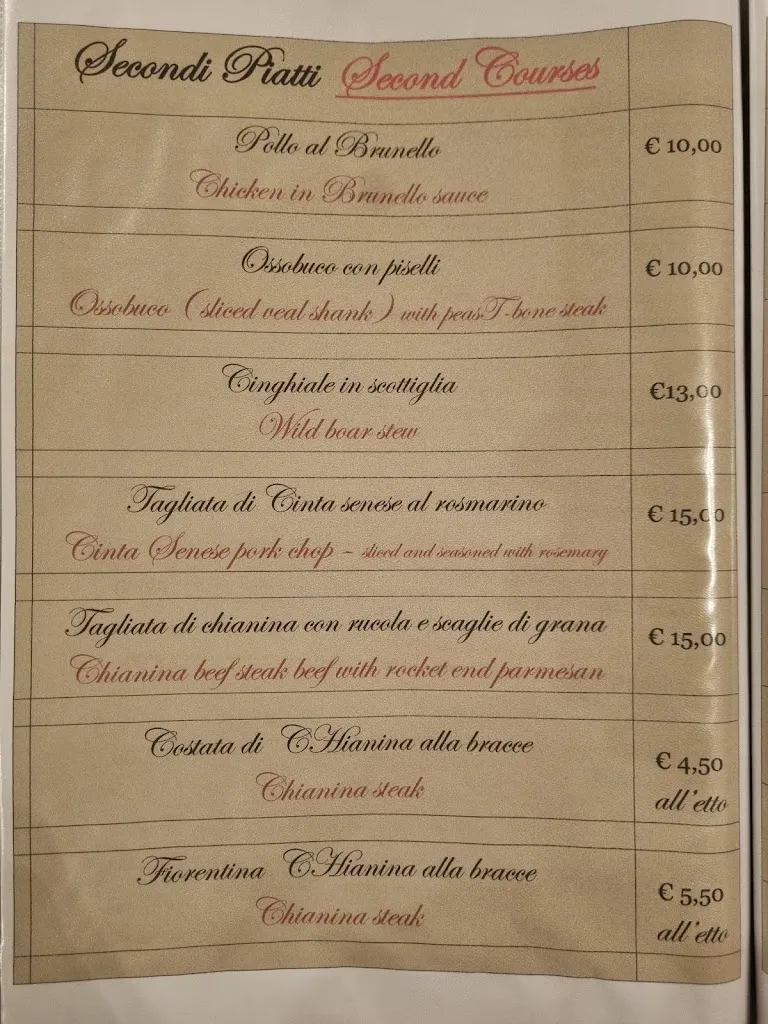 Secondi Piatti Second Courses
Pollo al Brunello € 10,00
Chicken in Brunello sauce
Ossobuco con piselli € 10,00
Ossobuco (sliced veal shank) with peasT-bone steak
Cinghiale in scottiglia €13,00
Wild boar stew
Tagliata di Cinta senese al rosmarino € 15,00
Cinta Senese pork chop - sliced and seasoned with rosemary
Tagliata di chianina con rucola e scaglie di grana € 15,00
Chianina beef steak beef with rocket end parmesan
Costata di CHianina alla bracce € 4,50
Chianina steak all'etto
Fiorentina CHianina alla bracce € 5,50
Chianina steak all'etto